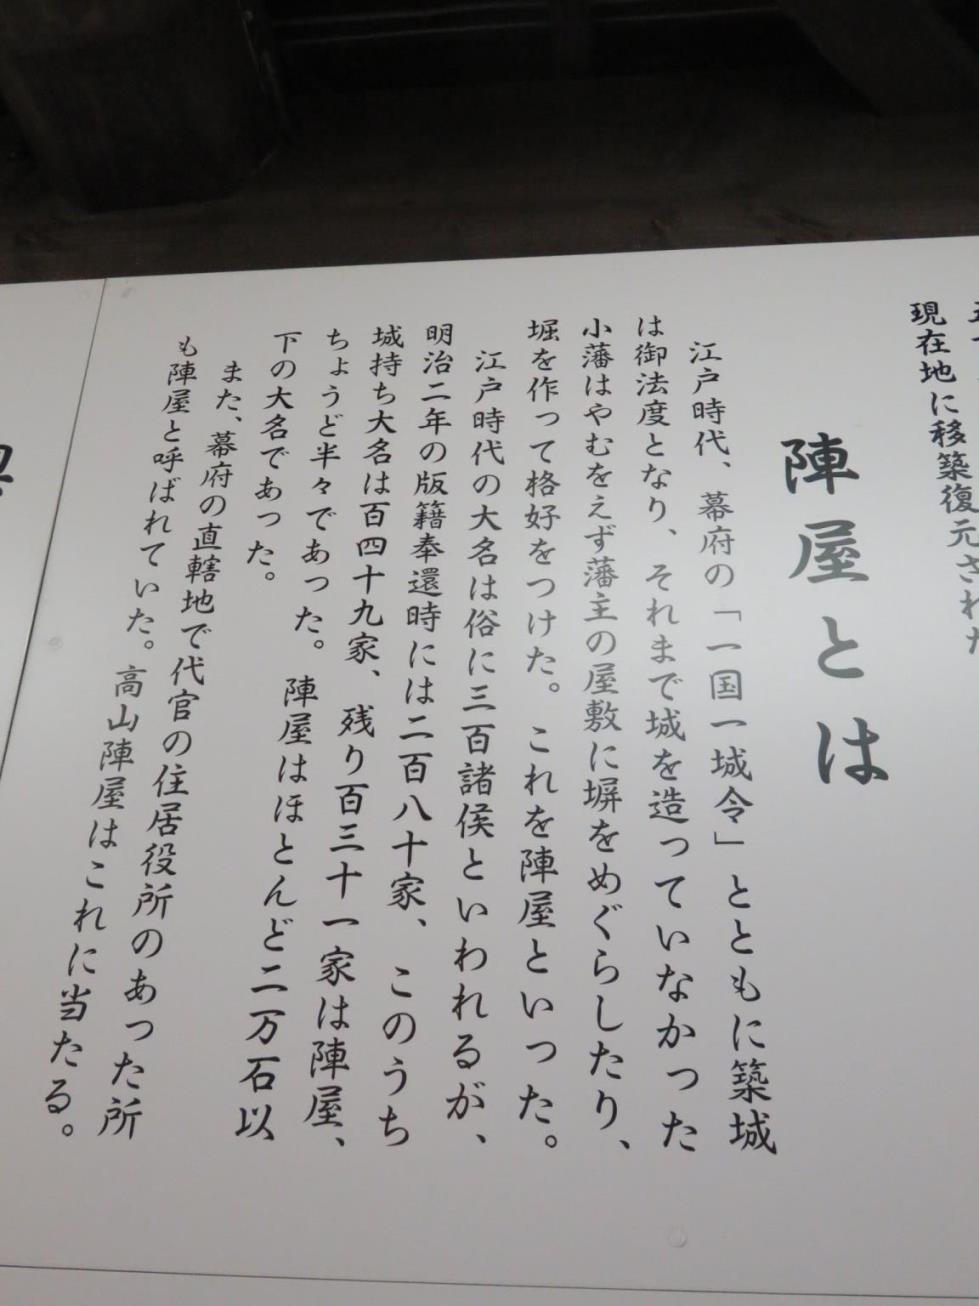 現在地に移築復元された
陣屋とは
江戸時代、幕府の「一国一城令」とともに築城
は御法度となり、それまで城を造っていなかった
小藩はやむをえず藩主の屋敷に塀をめぐらしたり、
堀を作って格好をつけた。これを陣屋といった。
江戸時代の大名は俗に三百諸侯といわれるが、
明治二年の版籍奉還時には二百八十家、このうち
城持ち大名は百四十九家、残り百三十一家は陣屋、
ちょうど半々であった。陣屋はほとんど二万石以
下の大名であった。
また、幕府の直轄地で代官の住居役所のあった所
も陣屋と呼ばれていた。高山陣屋はこれに当たる。